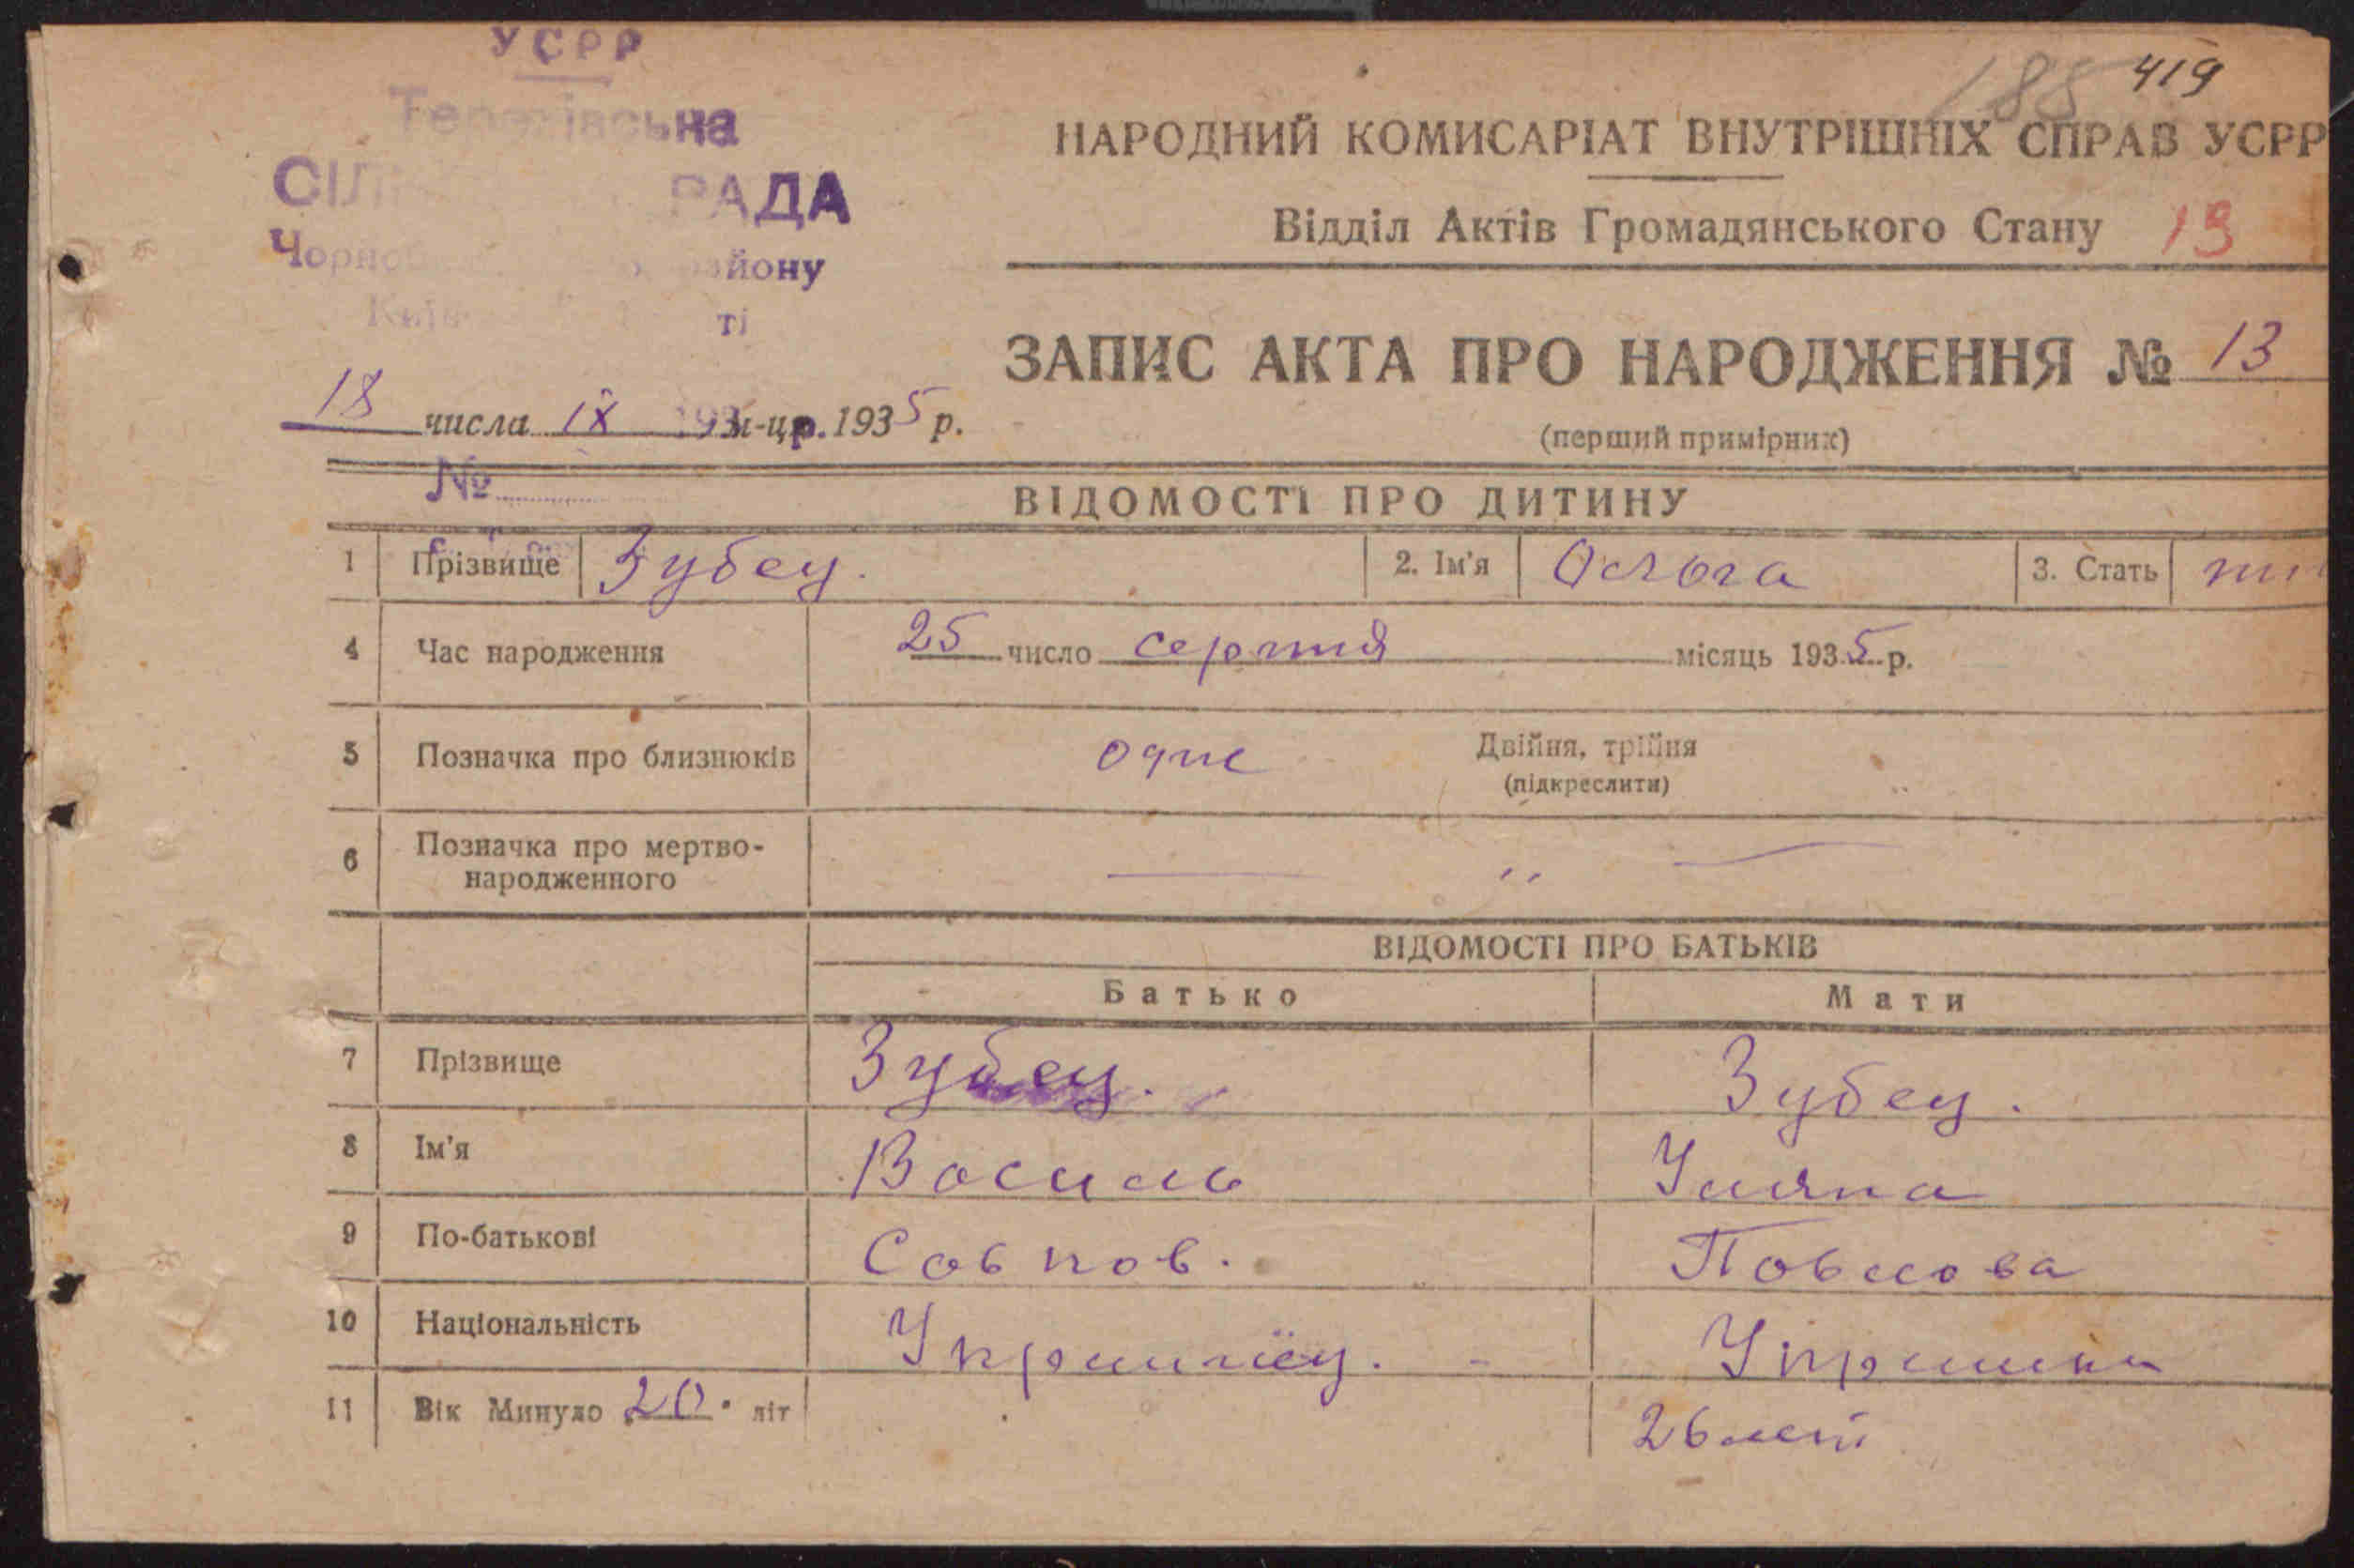 УСРР
Терехівська
СІЛ РАДА
Чорно йону
Київ ті
188 419
НАРОДНИЙ КОМИСАРІАТ ВНУТРІШНІХ СПРАВ УСРР
Відділ Актів Громадянського Стану 13
ЗАПИС АКТА ПРО НАРОДЖЕННЯ № 13
(перший примірник)
18 числа ІХ 193 м-ця р. 1935 р.
№
ВІДОМОСТІ ПРО ДИТИНУ
1 Прізвище Зубец. 2. Ім'я Ольга 3. Стать
4 Час народження 25 число серпня місяць 1935 р.
5 Позначка про близнюків одне Двійня, трійня
(підкреслити)
6 Позначка про мертво-
народженного — „ —
ВІДОМОСТІ ПРО БАТЬКІВ
Батько Мати
7 Прізвище Зубец. Зубец.
8 Ім'я Василь Уляна
9 По-батькові Савков. Павлова
10 Національність Українец. Українка
11 Вік Минуло 20 літ 26 лет